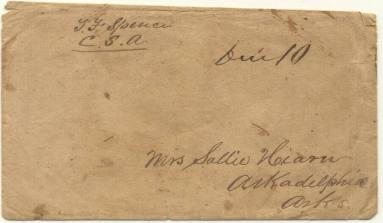 T. F. Spence
C. S. A.
Due 10
Mrs Sallie Hearn
Arkadelphia
Arks.